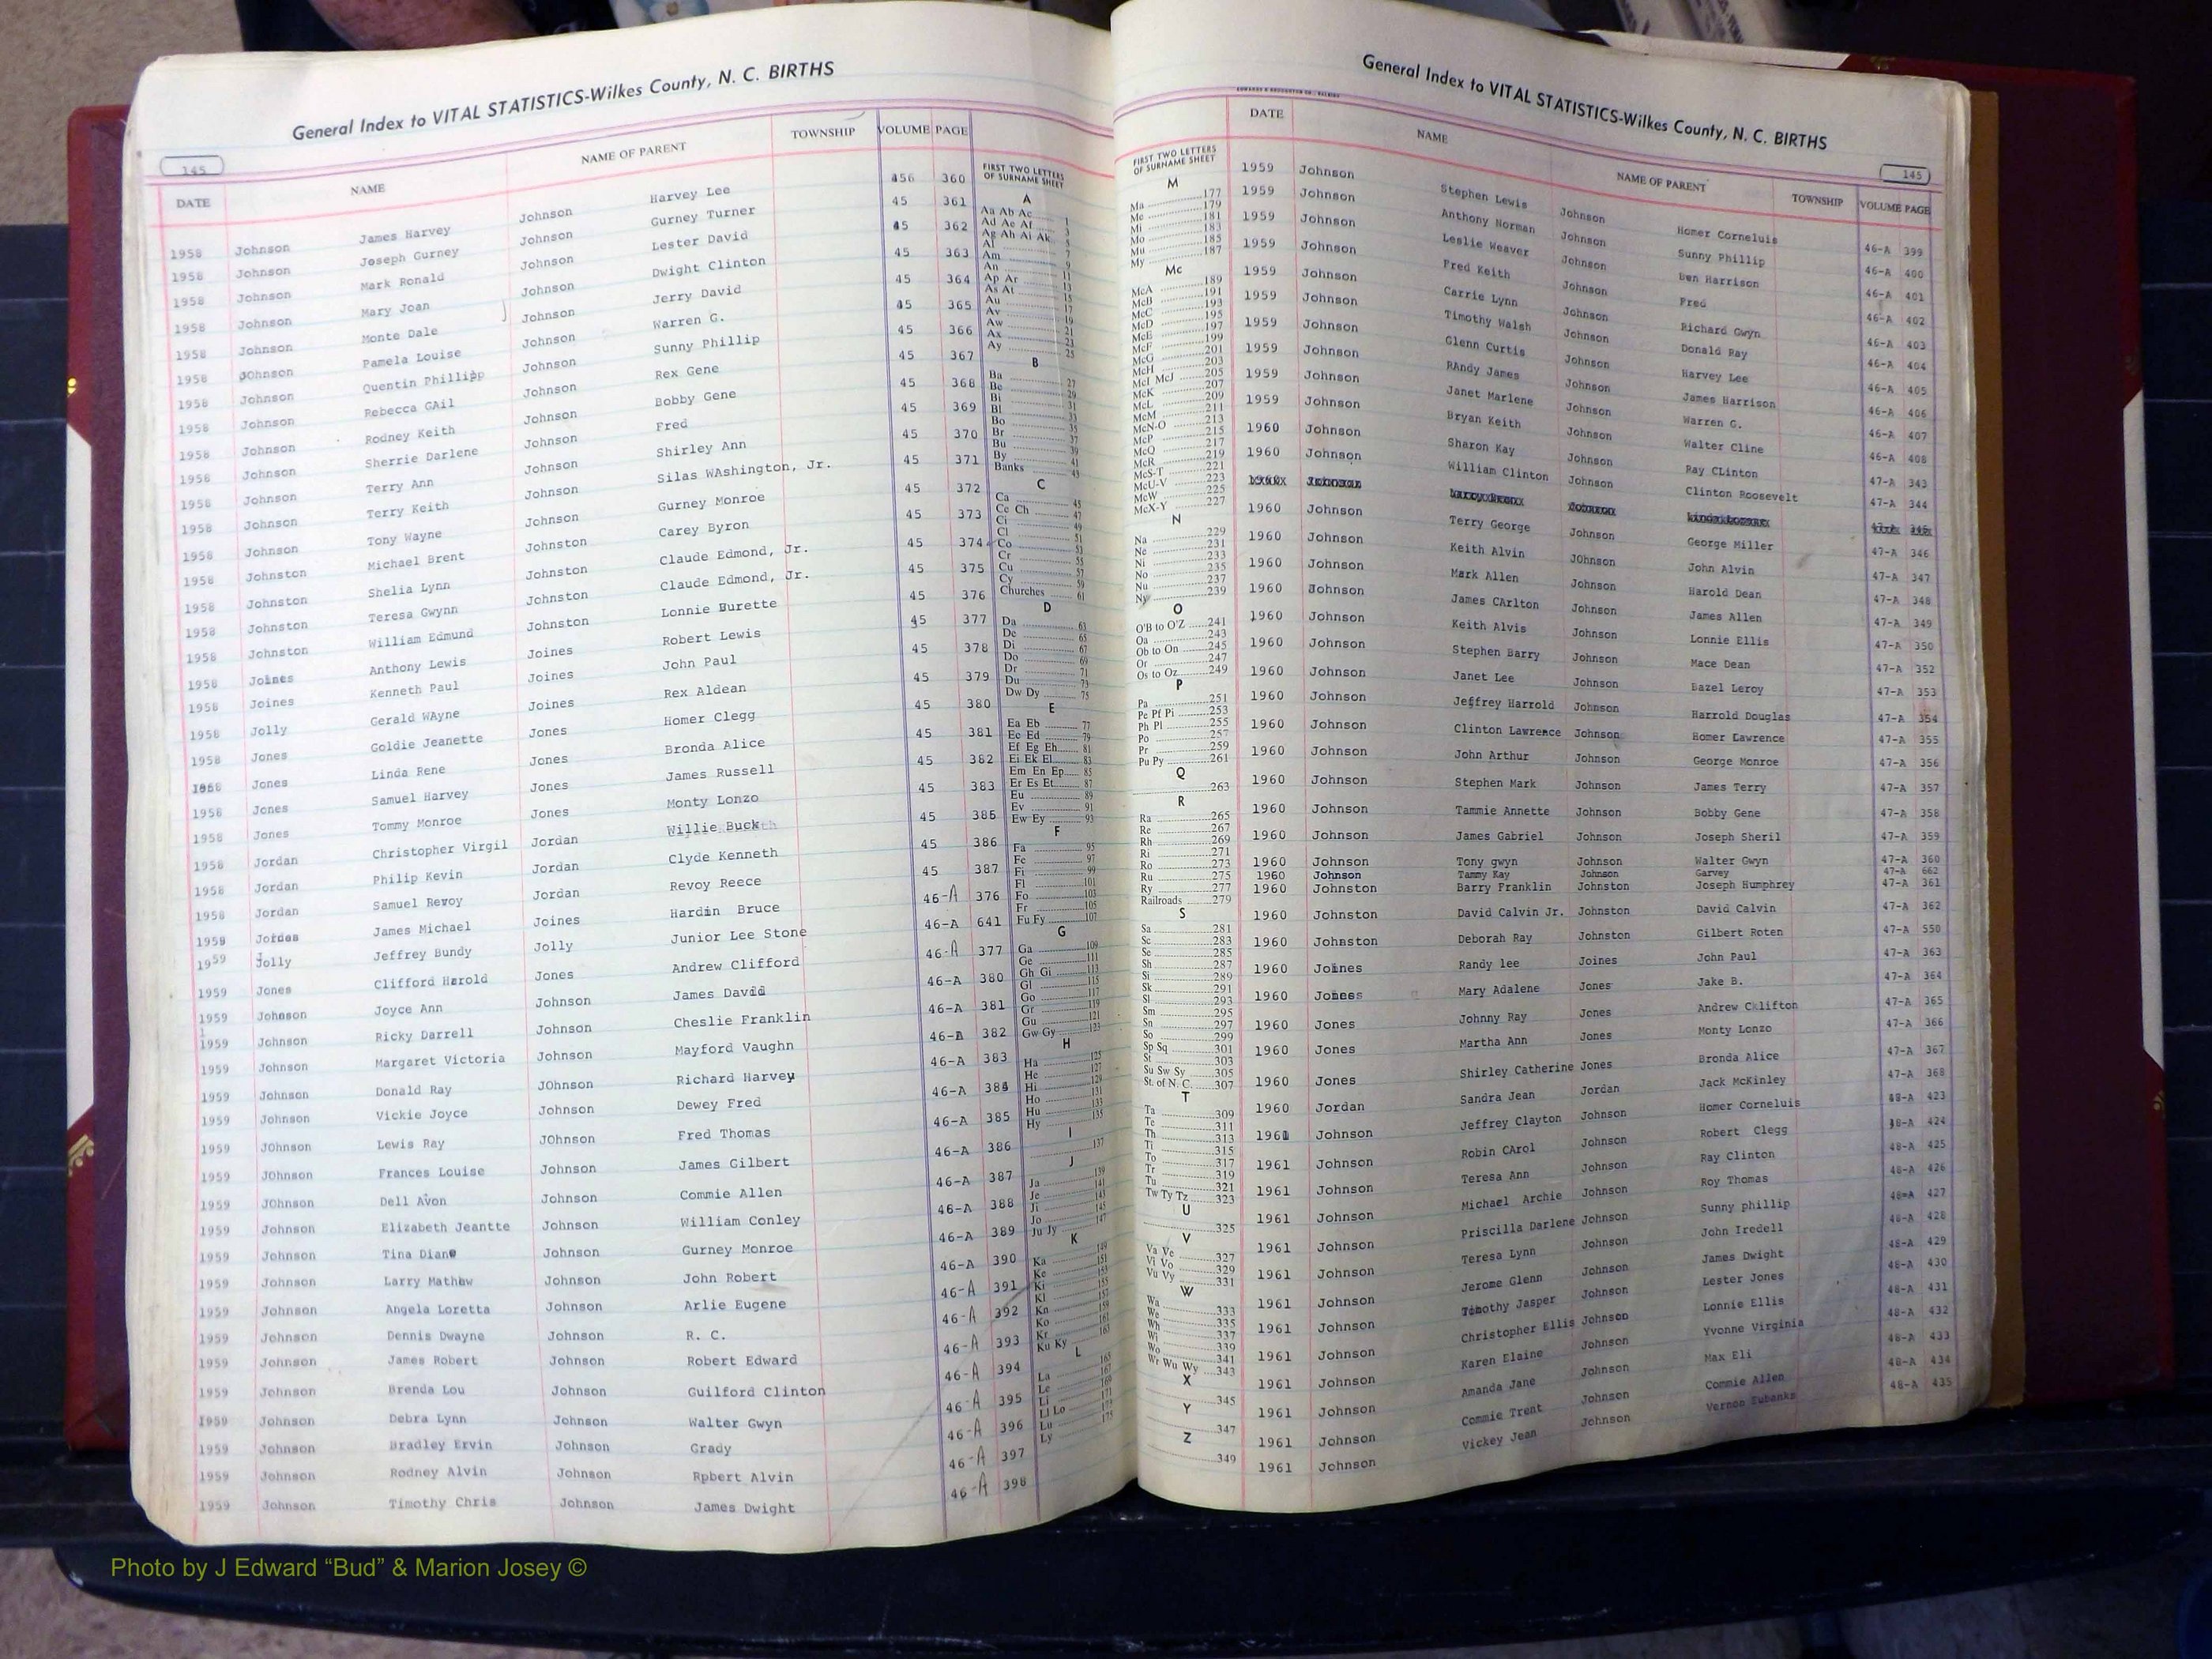 General Index to VITAL STATISTICS-Wilkes County, N. C. BIRTHS
145
DATE NAME NAME OF PARENT TOWNSHIP VOLUME PAGE
1958 Johnson James Harvey Johnson Harvey Lee 456 360
1958 Johnson Joseph Gurney Johnson Gurney Turner 45 361
1958 Johnson Mark Ronald Johnson Lester David 45 362
1958 Johnson Mary Joan Johnson Dwight Clinton 45 363
1958 Johnson Monte Dale Johnson Jerry David 45 364
1958 JOhnson Pamela Louise Johnson Warren G. 45 365
1958 Johnson Quentin Phillipp Johnson Sunny Phillip 45 366
1958 Johnson Rebecca GAil Johnson Rex Gene 45 367
1958 Johnson Rodney Keith Johnson Bobby Gene 45 368
1958 Johnson Sherrie Darlene Johnson Fred 45 369
1958 Johnson Terry Ann Johnson Shirley Ann 45 370
1958 Johnson Terry Keith Johnson Silas WAshington, Jr. 45 371
1958 Johnson Tony Wayne Johnson Gurney Monroe 45 372
1958 Johnston Michael Brent Johnston Carey Byron 45 373
1958 Johnston Shelia Lynn Johnston Claude Edmond, Jr. 45 374
1958 Johnston Teresa Gwynn Johnston Claude Edmond, Jr. 45 375
1958 Johnston William Edmund Johnston Lonnie Burette 45 376
1958 Joines Anthony Lewis Joines Robert Lewis 45 377
1958 Joines Kenneth Paul Joines John Paul 45 378
1958 Jolly Gerald WAyne Joines Rex Aldean 45 379
1958 Jones Goldie Jeanette Jones Homer Clegg 45 380
1958 Jones Linda Rene Jones Bronda Alice 45 381
1958 Jones Samuel Harvey Jones James Russell 45 382
1958 Jones Tommy Monroe Jones Monty Lonzo 45 383
1958 Jordan Christopher Virgil Jordan Willie Buck 45 385
1958 Jordan Philip Kevin Jordan Clyde Kenneth 45 386
1958 Jordan Samuel Revoy Jordan Revoy Reece 45 387
1959 Joines James Michael Joines Hardin Bruce 46-A 376
1959 Jolly Jeffrey Bundy Jolly Junior Lee Stone 46-A 641
1959 Jones Clifford Harold Jones Andrew Clifford 46-A 377
1959 Johnson Joyce Ann Johnson James David 46-A 380
1959 Johnson Ricky Darrell Johnson Cheslie Franklin 46-A 381
1959 Johnson Margaret Victoria Johnson Mayford Vaughn 46-A 382
1959 Johnson Donald Ray JOhnson Richard Harvey 46-A 383
1959 Johnson Vickie Joyce Johnson Dewey Fred 46-A 384
1959 JOhnson Lewis Ray JOhnson Fred Thomas 46-A 385
1959 JOhnson Frances Louise Johnson James Gilbert 46-A 386
1959 JOhnson Dell Avon Johnson Commie Allen 46-A 387
1959 Johnson Elizabeth Jeantte Johnson William Conley 46-A 388
1959 Johnson Tina Diane Johnson Gurney Monroe 46-A 389
1959 Johnson Larry Mathew Johnson John Robert 46-A 390
1959 Johnson Angela Loretta Johnson Arlie Eugene 46-A 391
1959 Johnson Dennis Dwayne Johnson R. C. 46-A 392
1959 Johnson James Robert Johnson Robert Edward 46-A 393
1959 Johnson Brenda Lou Johnson Guilford Clinton 46-A 394
1959 Johnson Debra Lynn Johnson Walter Gwyn 46-A 395
1959 Johnson Bradley Ervin Johnson Grady 46-A 396
1959 Johnson Rodney Alvin Johnson Rpbert Alvin 46-A 397
1959 Johnson Timothy Chris Johnson James Dwight 46-A 398
FIRST TWO LETTERS
OF SURNAME SHEET
A
Aa Ab Ac 1
Ad Ae Af 3
Ag Ah Ai Ak 5
Al 7
Am 9
An 11
Ap Ar 13
As At 15
Au 17
Av 19
Aw 21
Ax 23
Ay 25
B
Ba 27
Be 29
Bi 31
Bl 33
Bo 35
Br 37
Bu 39
By 41
Banks 43
C
Ca 45
Ce Ch 47
Ci 49
Cl 51
Co 53
Cr 55
Cu 57
Cy 59
Churches 61
D
Da 63
De 65
Di 67
Do 69
Dr 71
Du 73
Dw Dy 75
E
Ea Eb 77
Ec Ed 79
Ef Eg Eh 81
Ei Ek El 83
Em En Ep 85
Er Es Et 87
Eu 89
Ev 91
Ew Ey 93
F
Fa 95
Fe 97
Fi 99
Fl 101
Fo 103
Fr 105
Fu Fy 107
G
Ga 109
Ge 111
Gh Gi 113
Gl 115
Go 117
Gr 119
Gu 121
Gw Gy 123
H
Ha 125
He 127
Hi 129
Ho 131
Hu 133
Hy 135
I
137
J
Ja 139
Je 141
Ji 143
Jo 145
Ju Jy 147
K
Ka 149
Ke 151
Ki 153
Kl 155
Kn 157
Ko 159
Kr 161
Ku Ky 163
L
La 165
Le 167
Li 169
Ll Lo 171
Lu 173
Ly 175
General Index to VITAL STATISTICS-Wilkes County, N. C. BIRTHS
145
FIRST TWO LETTERS
OF SURNAME SHEET
M
Ma 177
Me 179
Mi 181
Mo 183
Mu 185
My 187
Mc
McA 189
McB 191
McC 193
McD 195
McE 197
McF 199
McG 201
McH 203
McI McJ 205
McK 207
McL 209
McM 211
McN-O 213
McP 215
McQ 217
McR 219
McS-T 221
McU-V 223
McW 225
McX-Y 227
N
Na 229
Ne 231
Ni 233
No 235
Nu 237
Ny 239
O
O'B to O'Z 241
Oa 243
Ob to On 245
Or 247
Os to Oz 249
P
Pa 251
Pe Pf Pi 253
Ph Pl 255
Po 257
Pr 259
Pu Py 261
Q
263
R
Ra 265
Re 267
Rh 269
Ri 271
Ro 273
Ru 275
Ry 277
Railroads 279
S
Sa 281
Sc 283
Se 285
Sh 287
Si 289
Sk 291
Sl 293
Sm 295
Sn 297
So 299
Sp Sq 301
St 303
Su Sw Sy 305
St. of N. C. 307
T
Ta 309
Te 311
Th 313
Ti 315
To 317
Tr 319
Tu 321
Tw Ty Tz 323
U
325
V
Va Ve 327
Vi Vo 329
Vu Vy 331
W
Wa 333
We 335
Wh 337
Wi 339
Wo 341
Wr Wu Wy 343
X
345
Y
347
Z
349
DATE NAME NAME OF PARENT TOWNSHIP VOLUME PAGE
1959 Johnson Stephen Lewis Johnson Homer Corneluis 46-A 399
1959 Johnson Anthony Norman Johnson Sunny Phillip 46-A 400
1959 Johnson Leslie Weaver Johnson Ben Harrison 46-A 401
1959 Johnson Fred Keith Johnson Fred 46-A 402
1959 Johnson Carrie Lynn Johnson Richard Gwyn 46-A 403
1959 Johnson Timothy Walsh Johnson Donald Ray 46-A 404
1959 Johnson Glenn Curtis Johnson Harvey Lee 46-A 405
1959 Johnson RAndy James Johnson James Harrison 46-A 406
1959 Johnson Janet Marlene Johnson Warren G. 46-A 407
1959 Johnson Bryan Keith Johnson Walter Cline 46-A 408
1960 Johnson Sharon Kay Johnson Ray CLinton 47-A 343
1960 Johnson William Clinton Johnson Clinton Roosevelt 47-A 344
1960 Johnson Terry George Johnson George Miller 47-A 346
1960 Johnson Keith Alvin JOhnson John Alvin 47-A 347
1960 Johnson Mark Allen Johnson Harold Dean 47-A 348
1960 Johnson James CArlton Johnson James Allen 47-A 349
1960 Johnson Keith Alvis Johnson Lonnie Ellis 47-A 350
1960 Johnson Stephen Barry Johnson Mace Dean 47-A 352
1960 Johnson Janet Lee Johnson Bazel Leroy 47-A 353
1960 Johnson Jeffrey Harrold Johnson Harrold Douglas 47-A 354
1960 Johnson Clinton Lawrence Johnson Homer Lawrence 47-A 355
1960 Johnson John Arthur Johnson George Monroe 47-A 356
1960 Johnson Stephen Mark Johnson James Terry 47-A 357
1960 Johnson Tammie Annette Johnson Bobby Gene 47-A 358
1960 Johnson James Gabriel Johnson Joseph Sheril 47-A 359
1960 Johnson Tony gwyn Johnson Walter Gwyn 47-A 360
1960 Johnson Tammy Kay Johnson Garvey 47-A 662
1960 Johnston Barry Franklin Johnston Joseph Humphrey 47-A 361
1960 Johnston David Calvin Jr. Johnston David Calvin 47-A 362
1960 Johnston Deborah Ray Johnston Gilbert Roten 47-A 550
1960 Joines Randy lee Joines John Paul 47-A 363
1960 Jones Mary Adalene Jones Jake B. 47-A 364
1960 Jones Johnny Ray Jones Andrew Cklifton 47-A 365
1960 Jones Martha Ann Jones Monty Lonzo 47-A 366
1960 Jones Shirley Catherine Jones Bronda Alice 47-A 367
1960 Jordan Sandra Jean Jordan Jack McKinley 47-A 368
1961 Johnson Jeffrey Clayton Johnson Homer Corneluis 48-A 423
1961 Johnson Robin CArol Johnson Robert Clegg 48-A 424
1961 Johnson Teresa Ann Johnson Ray Clinton 48-A 425
1961 Johnson Michael Archie Johnson Roy Thomas 48-A 426
1961 Johnson Priscilla Darlene Johnson Sunny phillip 48-A 427
1961 Johnson Teresa Lynn Johnson John Iredell 48-A 428
1961 Johnson Jerome Glenn Johnson James Dwight 48-A 429
1961 Johnson Timothy Jasper Johnson Lester Jones 48-A 430
1961 Johnson Christopher Ellis Johnson Lonnie Ellis 48-A 431
1961 Johnson Karen Elaine Johnson Yvonne Virginia 48-A 432
1961 Johnson Amanda Jane Johnson Max Eli 48-A 433
1961 Johnson Commie Trent Johnson Commie Allen 48-A 434
1961 Johnson Vickey Jean Johnson Vernon Eubanks 48-A 435
Photo by J Edward “Bud” & Marion Josey ©